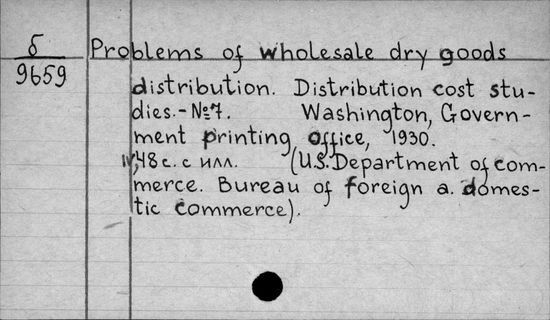 б
9659
Problems of wholesale dry goods
distribution. Distribution cost stu-
dies.- №7. Washington, Govern-
ment printing office, 1930.
IV,48 с. с илл. (U.S. Department of com-
merce. Bureau of foreign a. domes-
tic commerce).